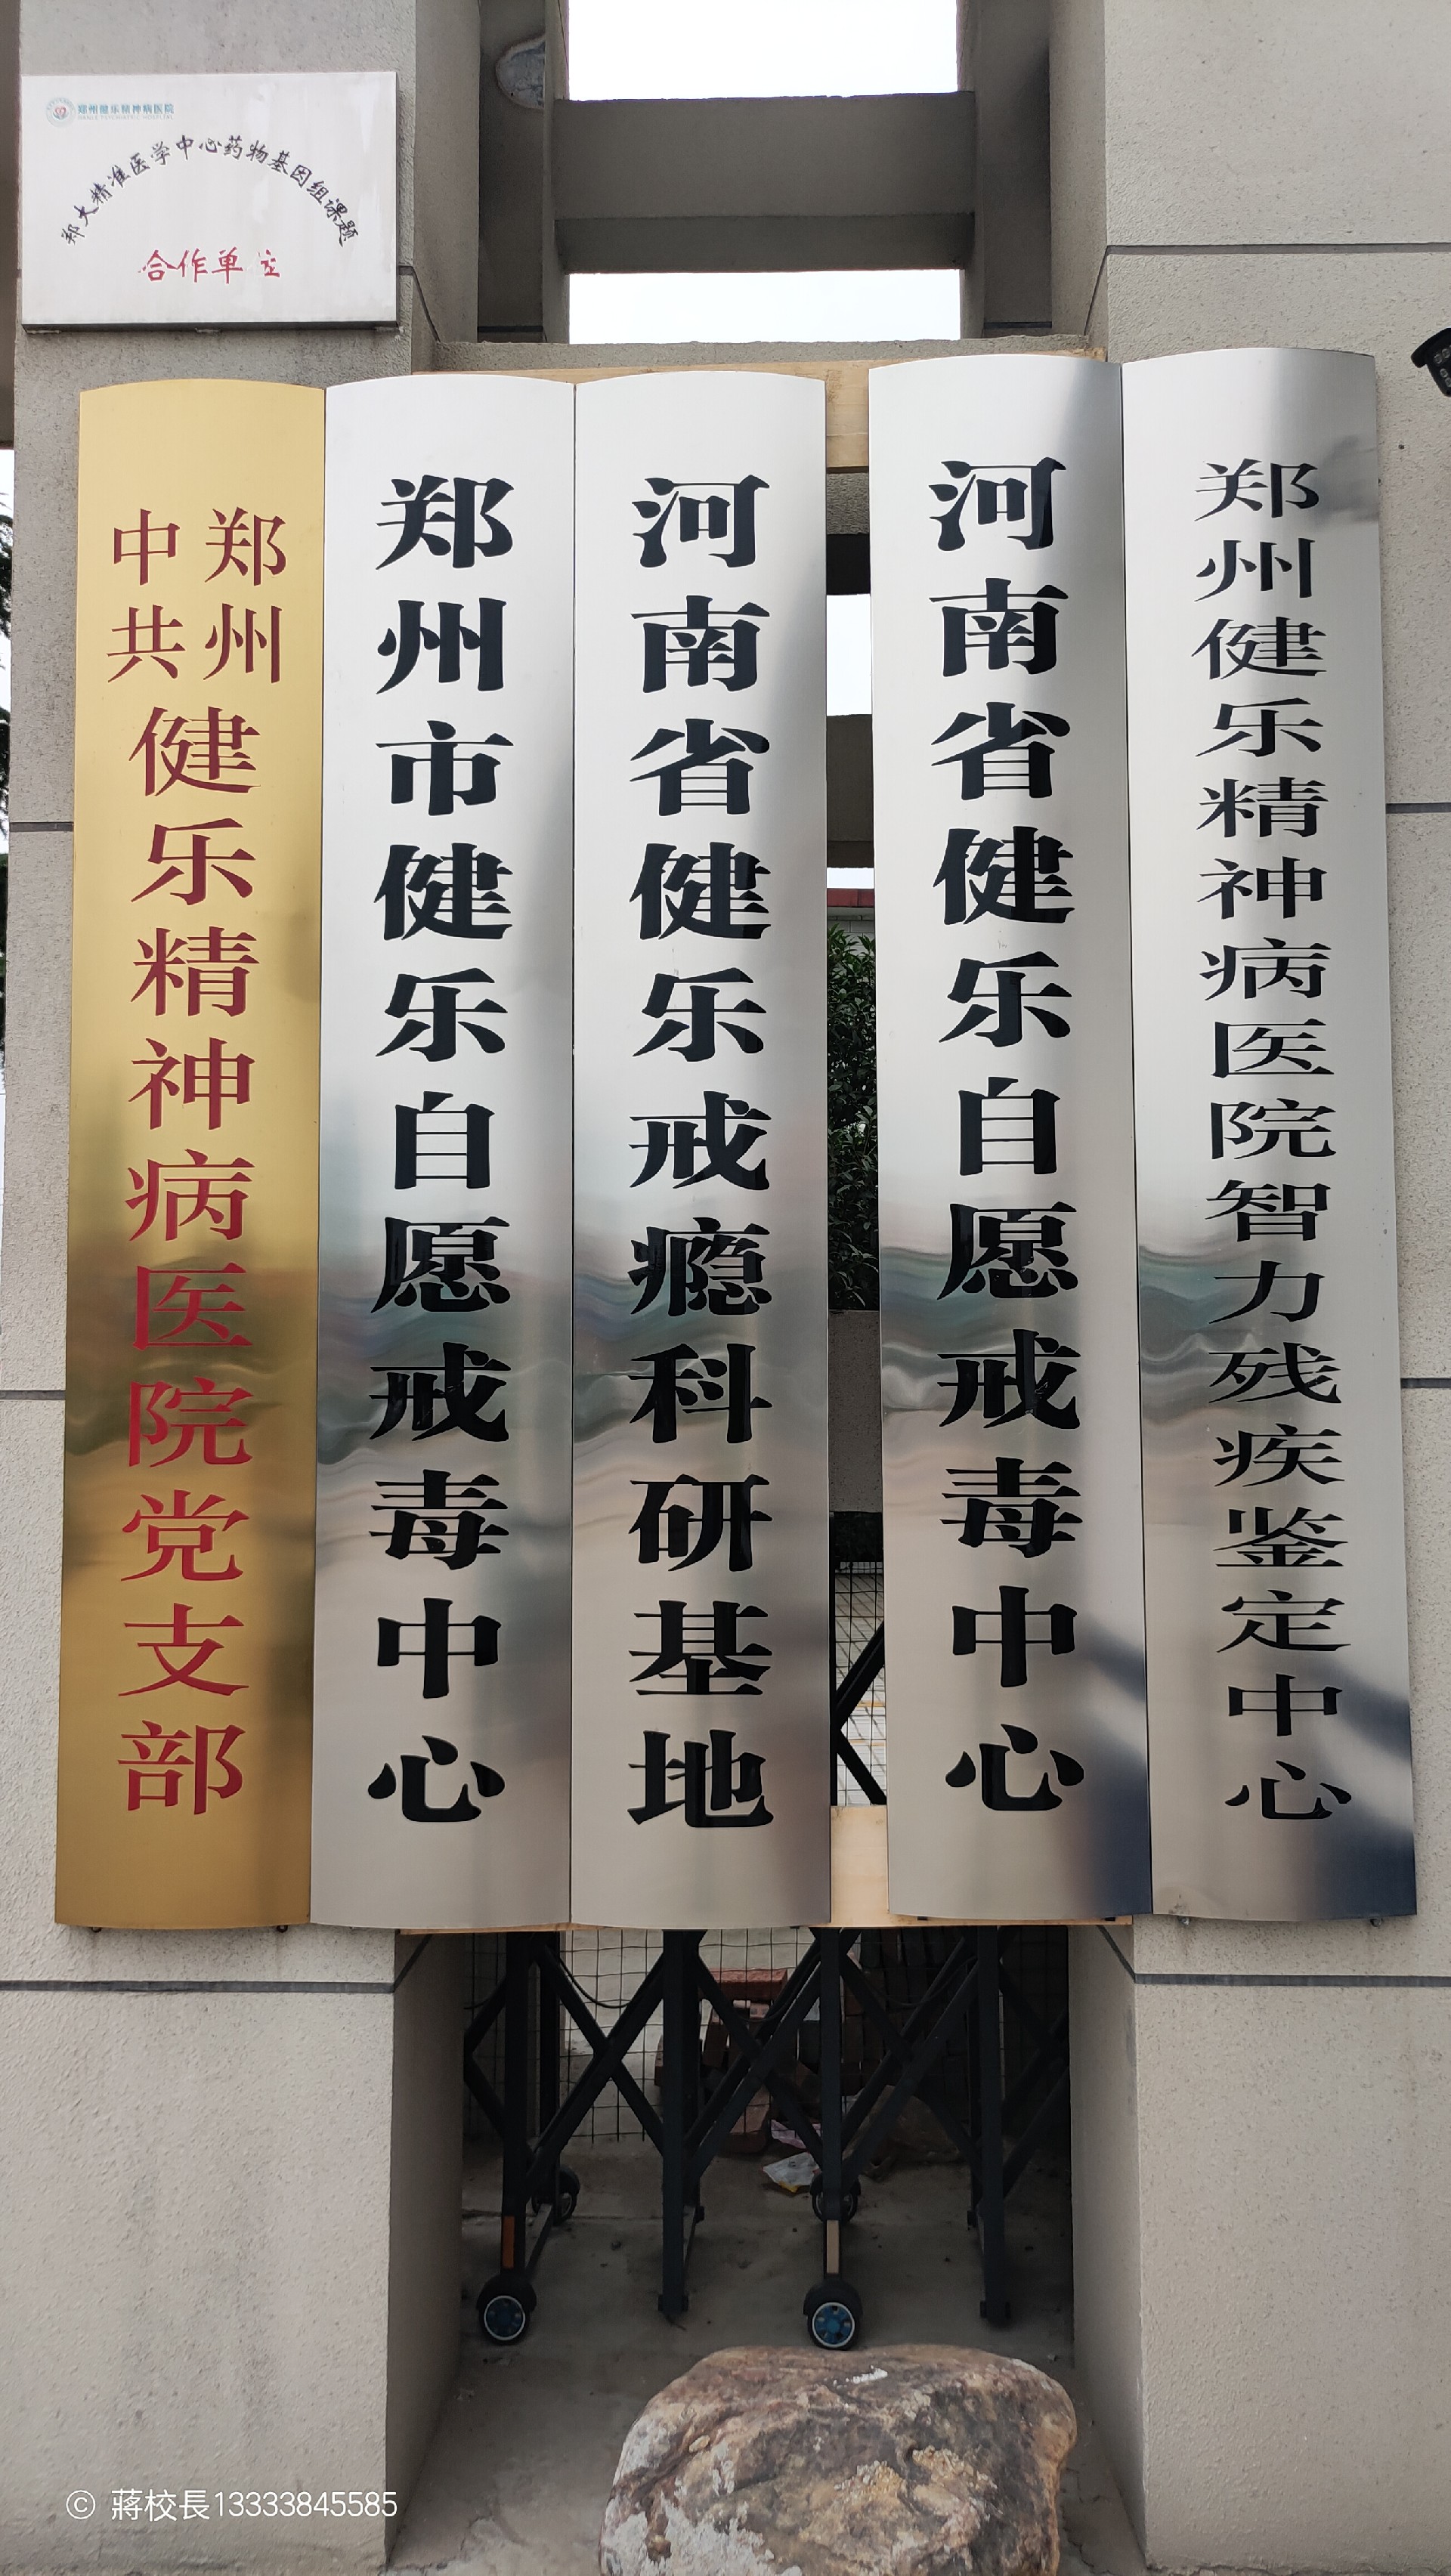 郑州健乐精神病医院
郑大精准医学中心药物基因组课题
合作单立
中共郑州健乐精神病医院党支部
郑州市健乐自愿戒毒中心
河南省健乐戒瘾科研基地
河南省健乐自愿戒毒中心
郑州健乐精神病医院智力残疾鉴定中心
© 蔣校長13333845585